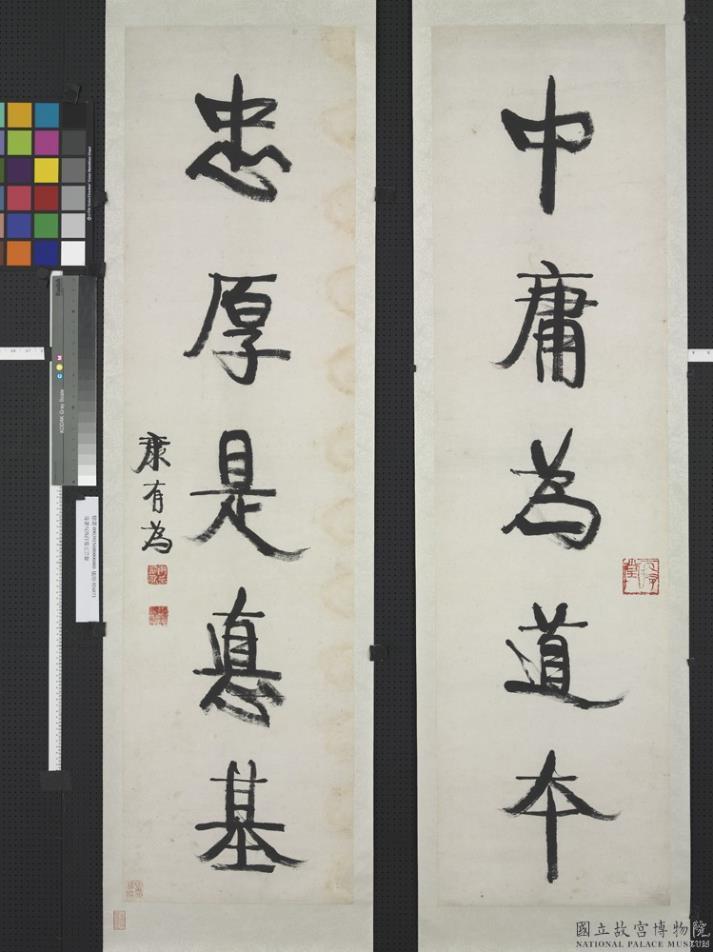 中庸為道本
忠厚是悳基
康有為
國立故宮博物院
NATIONAL PALACE MUSEUM